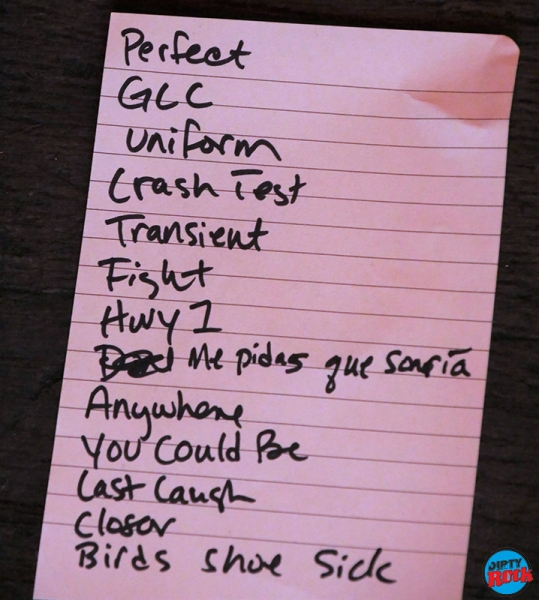 Perfect
GLC
Uniform
Crash Test
Transient
Fight
Hwy 1
Me pidas que sonría
Anywhere
You Could Be
Last Laugh
Closer
Birds shoe Sick
DIRTY
Rock